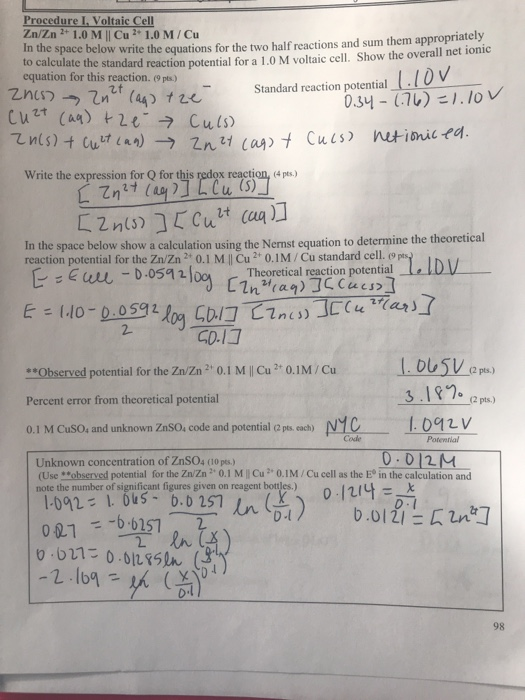 Procedure I, Voltaic Cell
Zn/Zn 2+ 1.0 M || Cu 2+ 1.0 M / Cu
In the space below write the equations for the two half reactions and sum them appropriately
to calculate the standard reaction potential for a 1.0 M voltaic cell. Show the overall net ionic
equation for this reaction. (9 pts)
Standard reaction potential 1.10V
Zn(s) → Zn2+ (aq) + 2e-
0.34 - (.76) = 1.10 V
Cu2+ (aq) + 2e- → Cu(s)
Zn(s) + Cu2+ (aq) → Zn2+ (aq) + Cu(s) net ionic eq.
Write the expression for Q for this redox reaction. (4 pts.)
[Zn2+ (aq)] [Cu (s)]
[Zn(s)] [Cu2+ (aq)]
In the space below show a calculation using the Nernst equation to determine the theoretical
reaction potential for the Zn/Zn 2+ 0.1 M || Cu 2+ 0.1M / Cu standard cell. (9 pts)
Theoretical reaction potential 1.10V
E = Ecell - 0.0592 log [Zn2+(aq)][Cu(s)]
[Zn(s)][Cu2+(aq)]
E = 1.10 - 0.0592 log [0.1]
2 [0.1]
**Observed potential for the Zn/Zn 2+ 0.1 M || Cu 2+ 0.1M / Cu 1.065V (2 pts.)
Percent error from theoretical potential 3.18% (2 pts.)
0.1 M CuSO4 and unknown ZnSO4 code and potential (2 pts. each) NYC 1.092V
Code Potential
Unknown concentration of ZnSO4 (10 pts.) 0.012M
(Use **observed potential for the Zn/Zn 2+ 0.1 M || Cu 2+ 0.1M / Cu cell as the E° in the calculation and
note the number of significant figures given on reagent bottles.)
1.092 = 1.065 - 0.0257 ln (x/0.1)
2
0.1214 = x/0.1
0.27 = -0.0257 ln (x/0.1)
2
0.0121 = [Zn2+]
0.027 = 0.01285 ln (x/0.1)
-2.109 = ln (x/0.1)
98